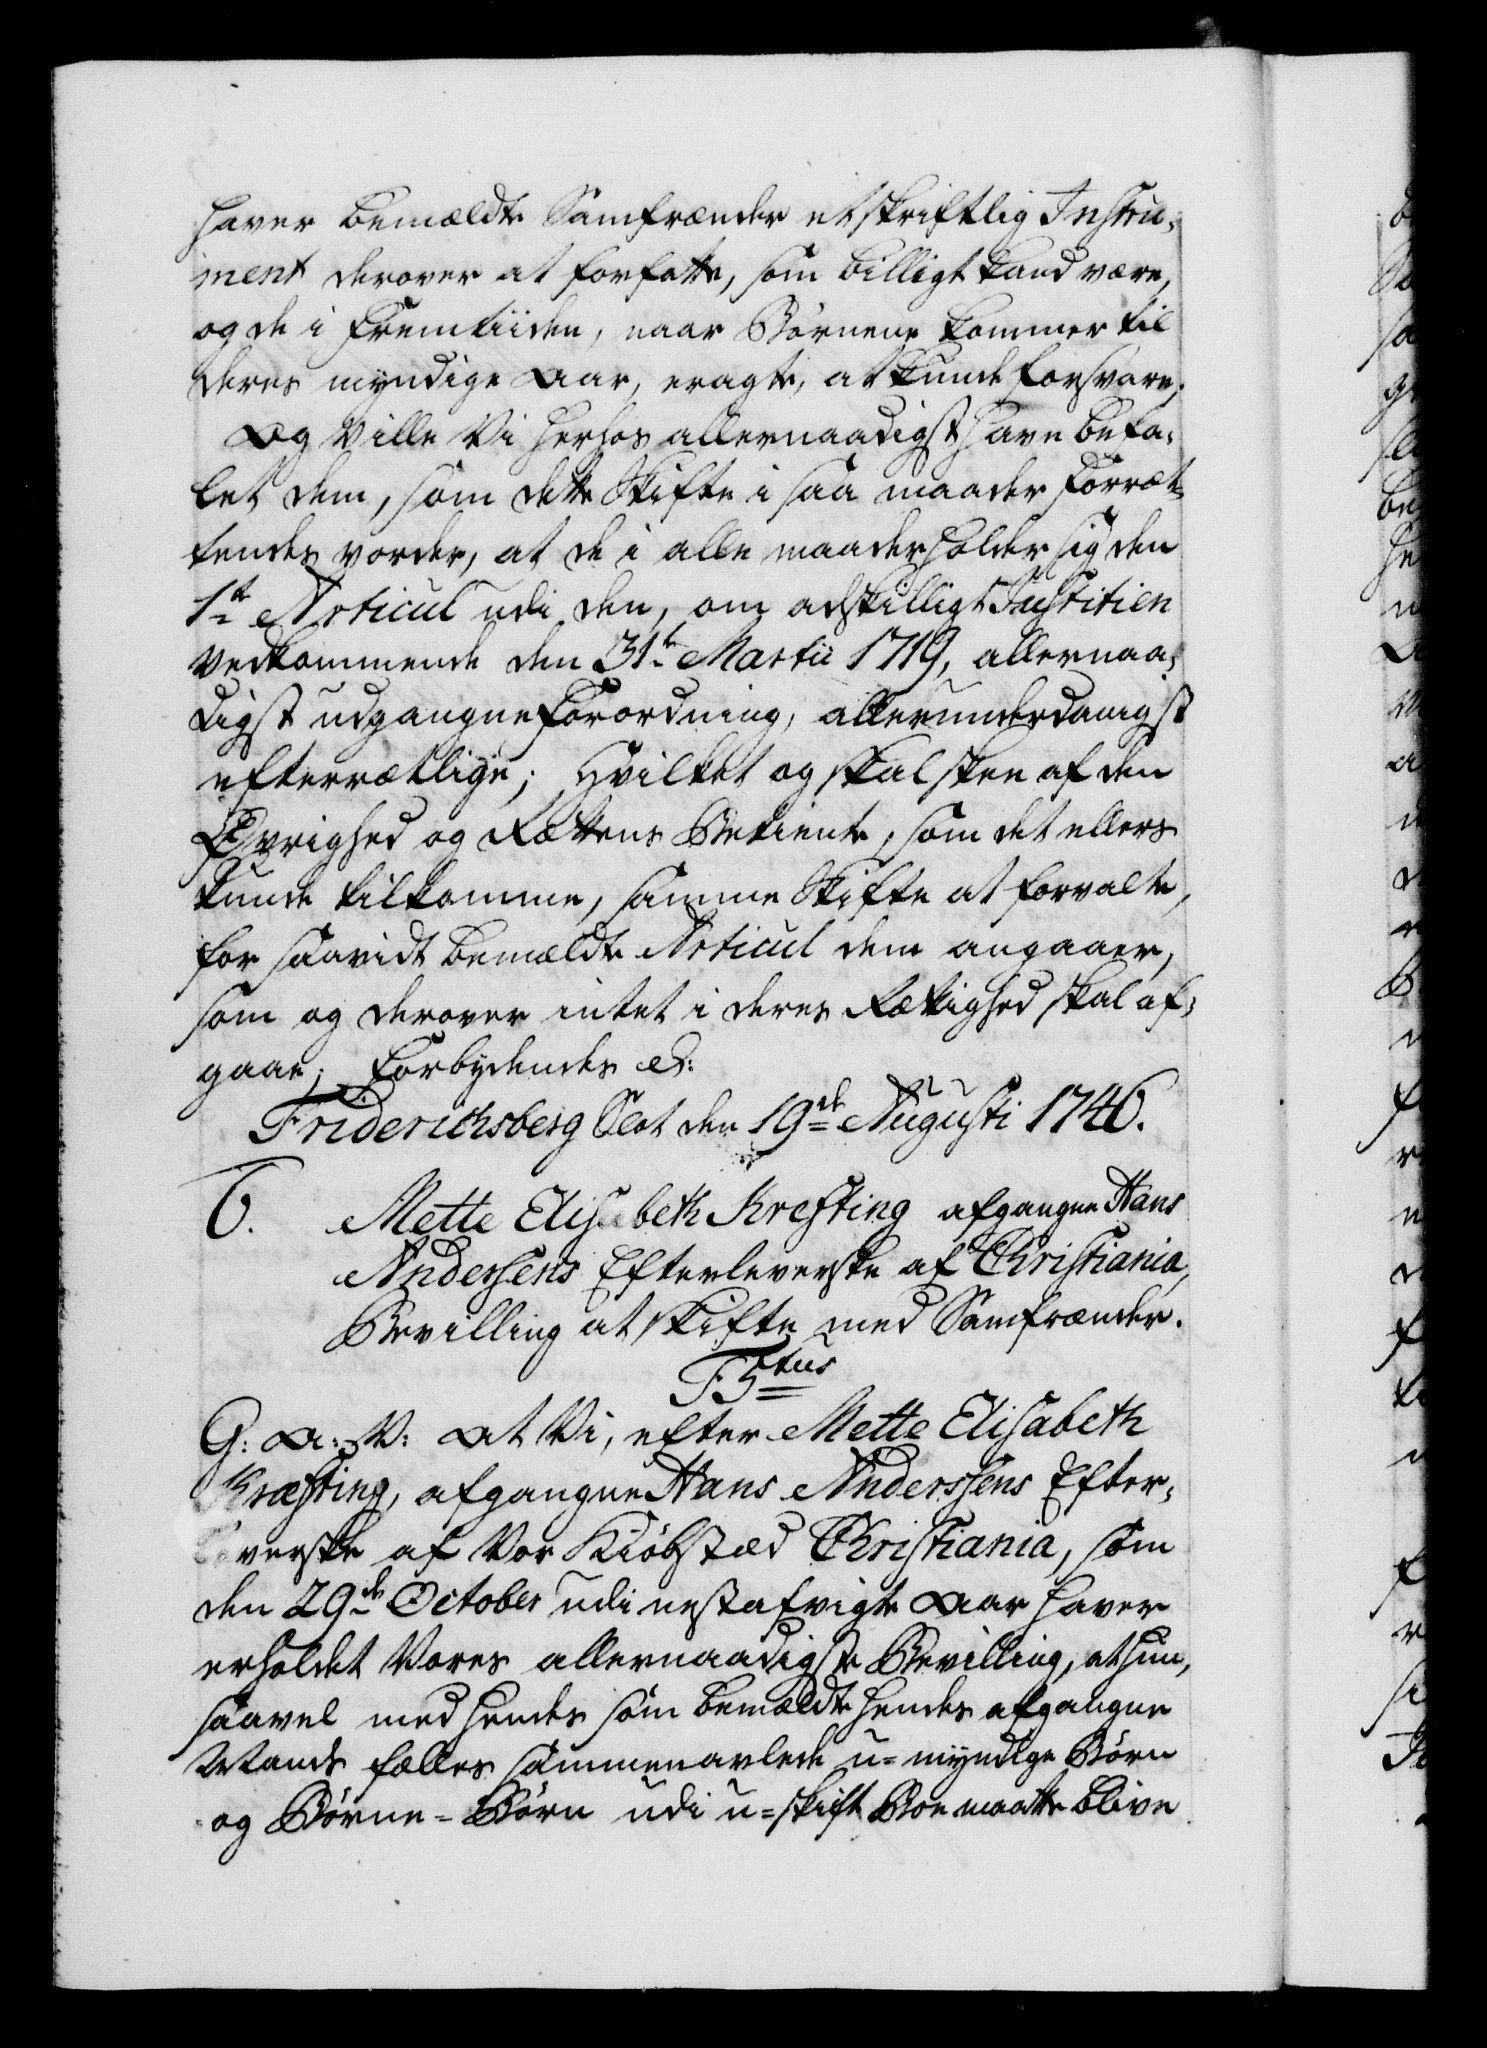 haver bemældte Samfrænder et skriftlig Instru-
ment derover at forfatte, som billigt kand være,
og de i Fremtiiden, naar Børnene kommer til
deres myndige Aar, eragte, at kunde forsvare;
Og Ville Vi herhos allernaadigst have befa-
let dem, som dette Skifte i saa maader Forræt-
tendes vorder, at de i alle maader holder sig den
1te Articul udi den, om adskilligt Justitien
vedkommende den 31te Martii 1719, allernaa-
digst udgangne Forordning, allerunderdanigst
efterrætlige; Hvilket og skal skee af den
Øvrighed og Rættens Betiente, som det ellers
kunde tilkomme, samme Skifte at forvalte,
for saavidt bemældte Articul dem angaaer,
som og derover intet i deres Rættighed skal af-
gaae; Forbydendes etc:
Friderichsberg Slot den 19de Augusti 1746.
6. Mette Elisabeth Krefting afgangne Hans
Andersens Efterleverske af Christiania,
Bevilling at skifte med Samfrænder.
F5tus
G: A: V: At Vi, efter Mette Elisabeth
Kræfting, afgangne Hans Anderssens Efter-
leverske af Vor Kiøbstæd Christiania, som
den 29de October udi nestafvigte Aar haver
erholdet Vores allernaadigste Bevilling, at hun,
saavel med hendes som bemældte hendes afgangne
Mands fælles sammenavlede u-myndige Børn
og Børne-Børn udi u-skift Boe maatte blive